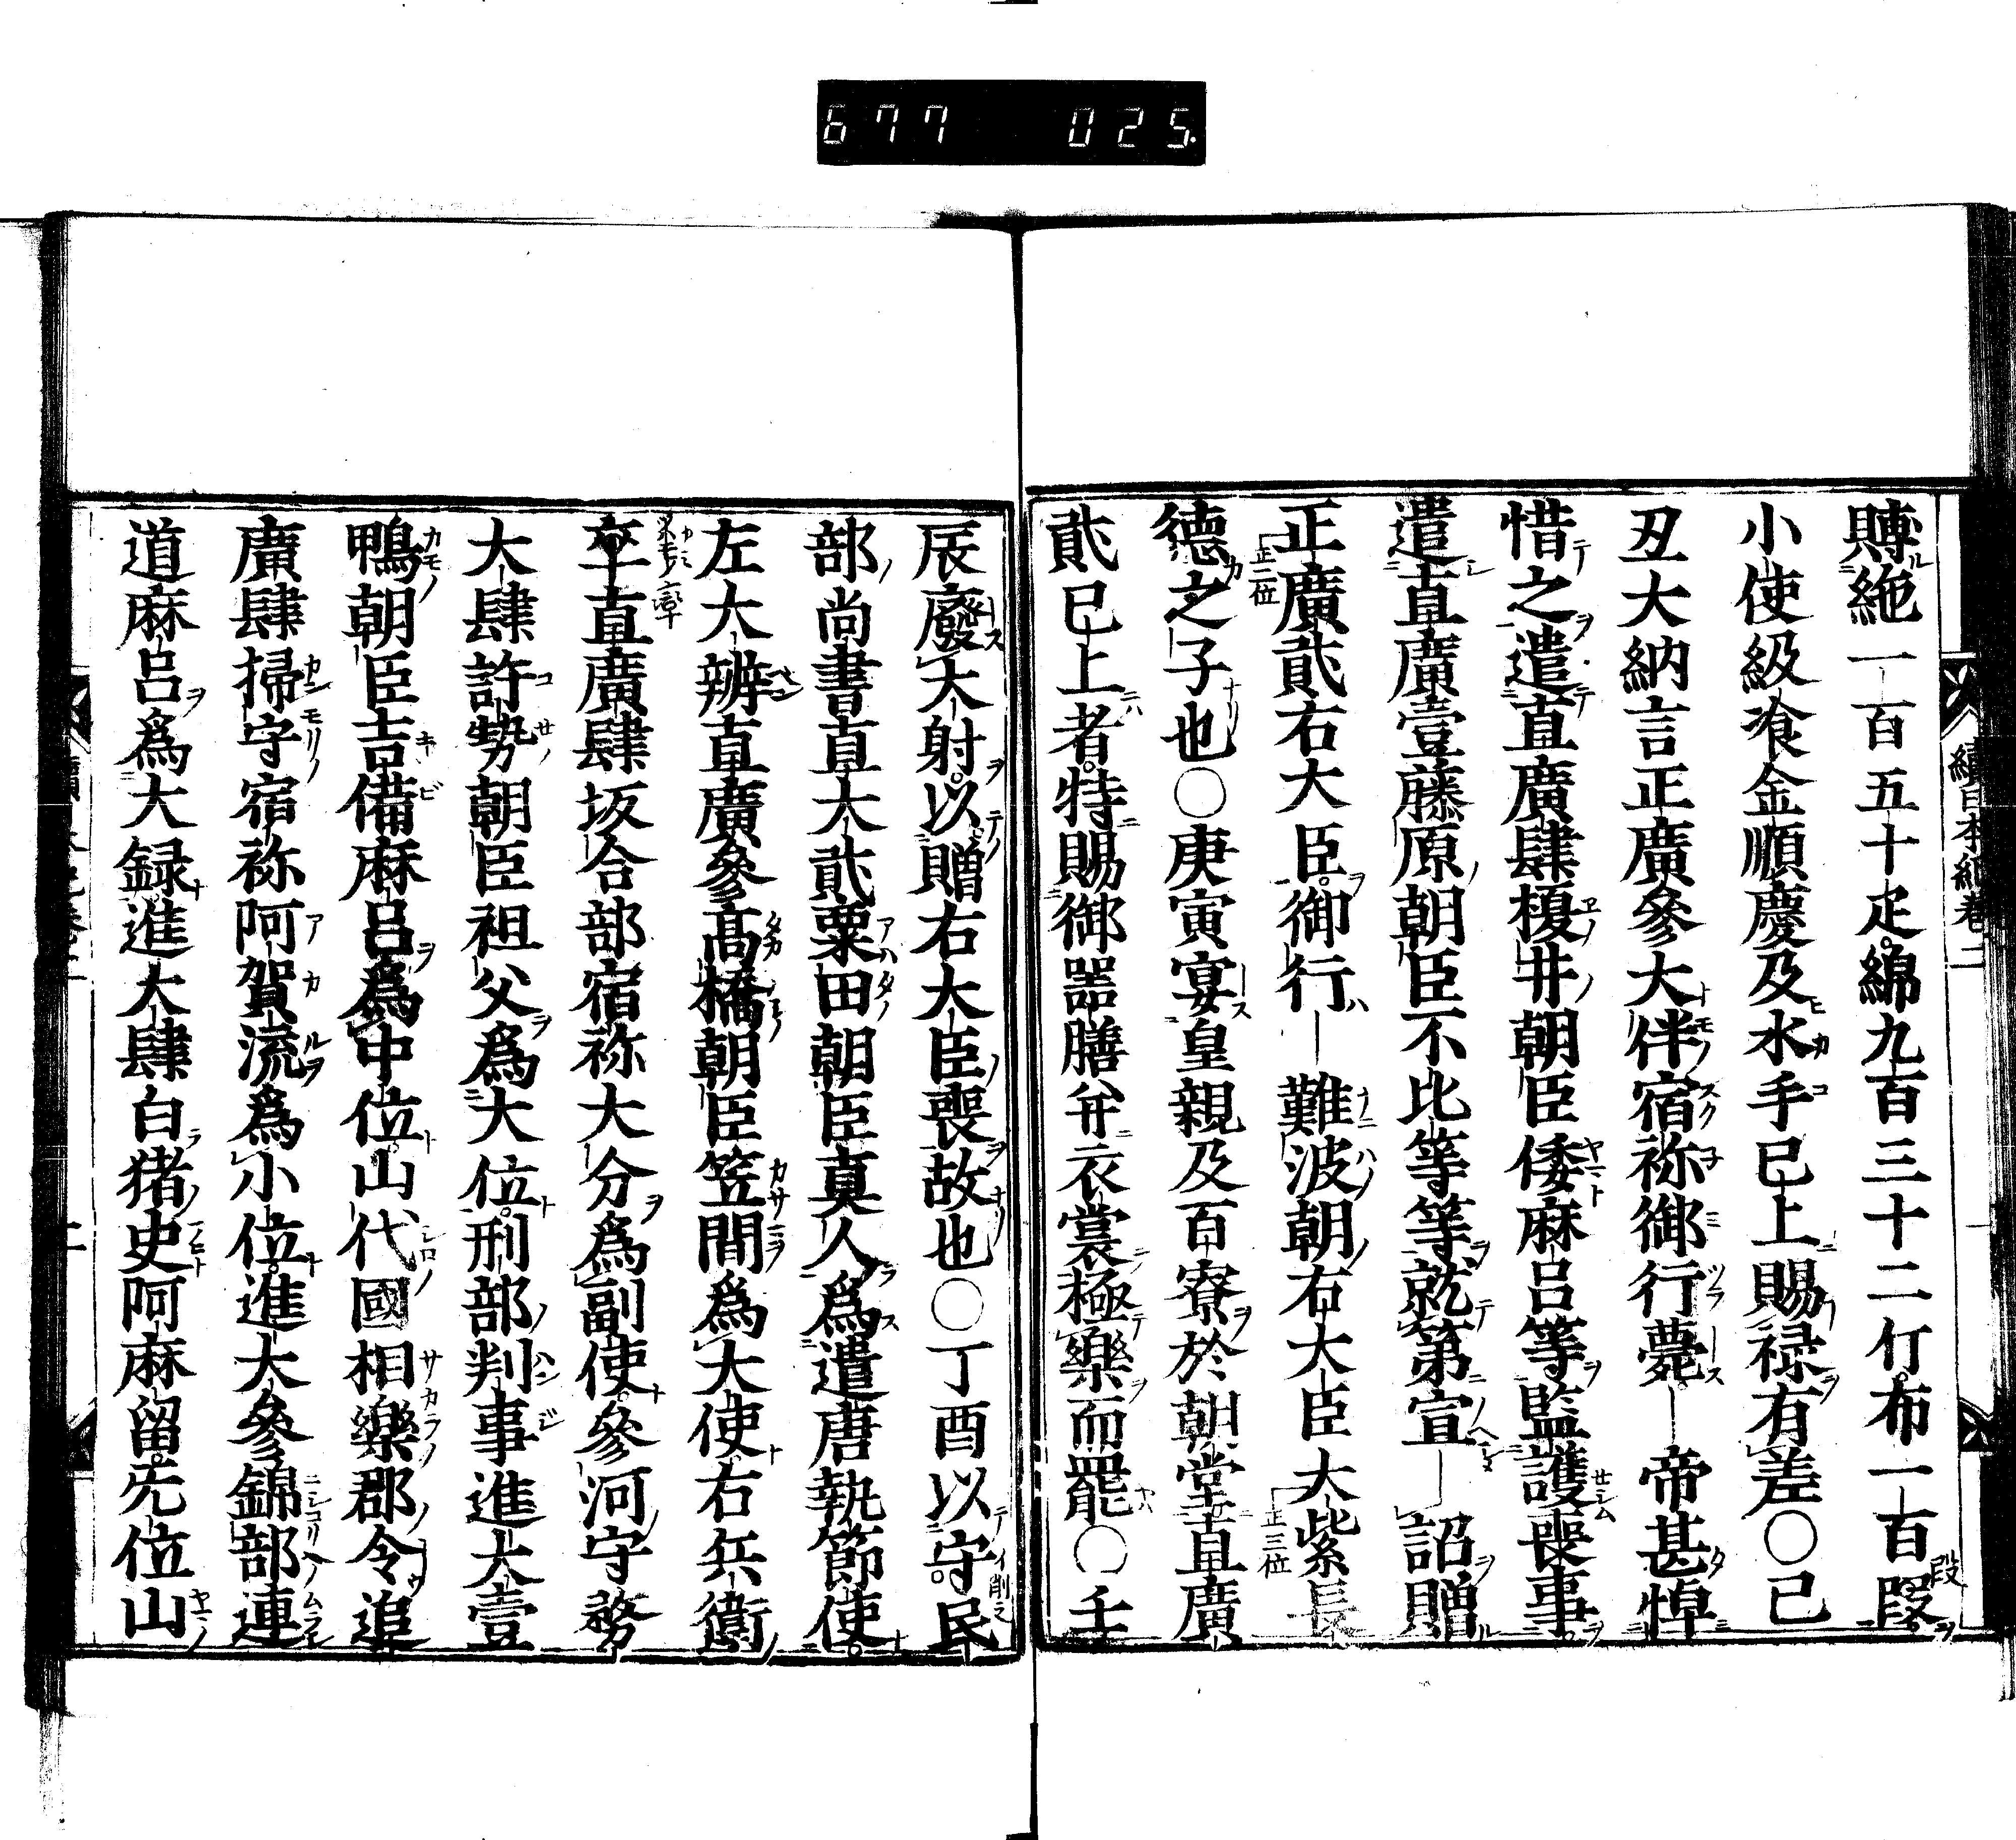 677 025
續日本紀卷二
賻絁一百五十疋綿九百三十二斤布一百段
小使級飡金順慶及水手已上賜禄有差〇己
丑大納言正廣參大伴宿祢御行薨帝甚悼
惜之遣直廣肆榎井朝臣倭麻呂等監護喪事
遣直廣壹藤原朝臣不比等等就第宣詔贈
正廣貳右大臣御行難波朝右大臣大紫長
德之子也〇庚寅宴皇親及百寮於朝堂直廣
貳已上者特賜御器膳并衣裳極樂而罷〇壬
辰廢大射以贈右大臣喪故也〇丁酉以守民
部尚書直大貳粟田朝臣真人爲遣唐執節使
左大辨直廣參髙橋朝臣笠間爲大使右兵衛
率直廣肆坂合部宿祢大分爲副使參河守務
大肆許勢朝臣祖父爲大位刑部判事進大壹
鴨朝臣吉備麻呂爲中位山代國相樂郡令追
廣肆掃守宿祢阿賀流爲小位進大參錦部連
道麻呂爲大録進大肆白猪史阿麻留先位山